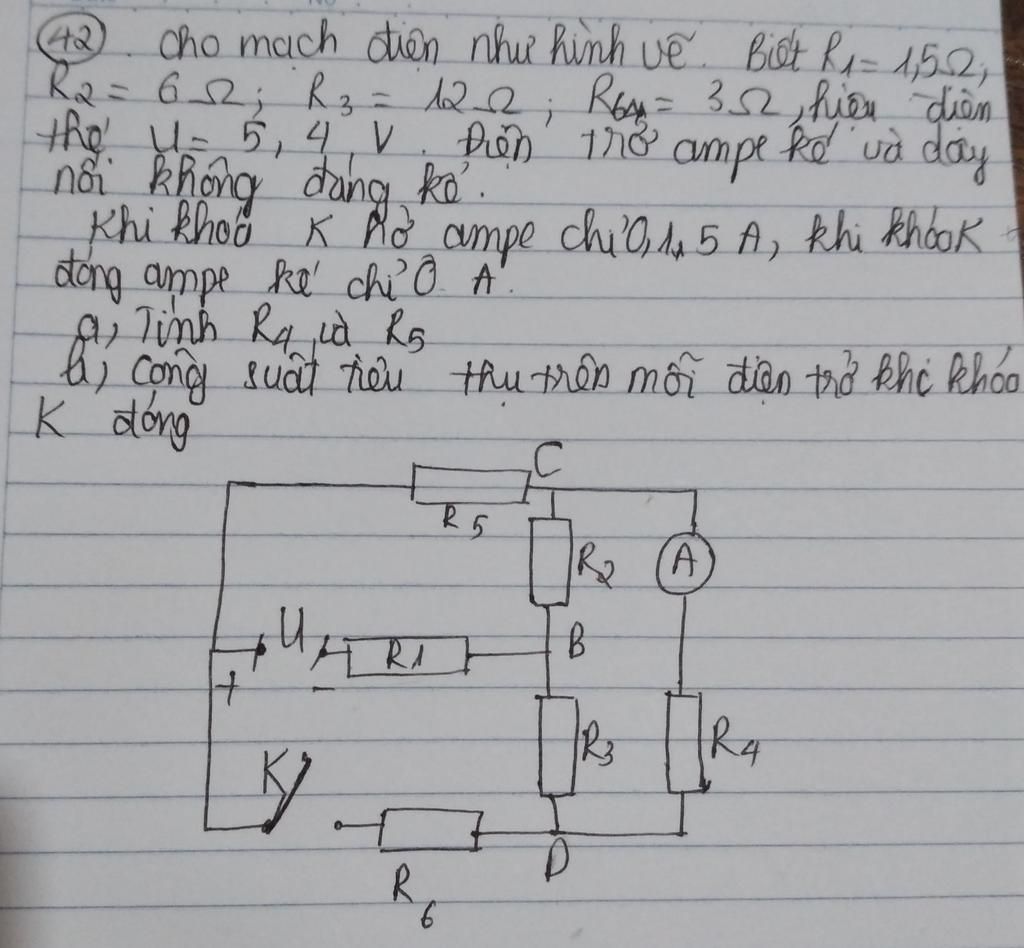 42. cho mạch điện như hình vẽ. Biết R1 = 1,5Ω;
R2 = 6Ω; R3 = 12Ω; R6 = 3Ω, hiệu điện
thế U = 5,4 V. Điện trở ampe kế và dây
nối không đáng kể.
Khi khoá K hở ampe chỉ 0,15 A, khi khóa K
đóng ampe kế chỉ 0 A.
a, Tính R4 và R5
b, Công suất tiêu thụ trên mỗi điện trở khi khóa
K đóng
C
R5
R2
A
U
R1
B
+
-
K
R3
R4
D
R6